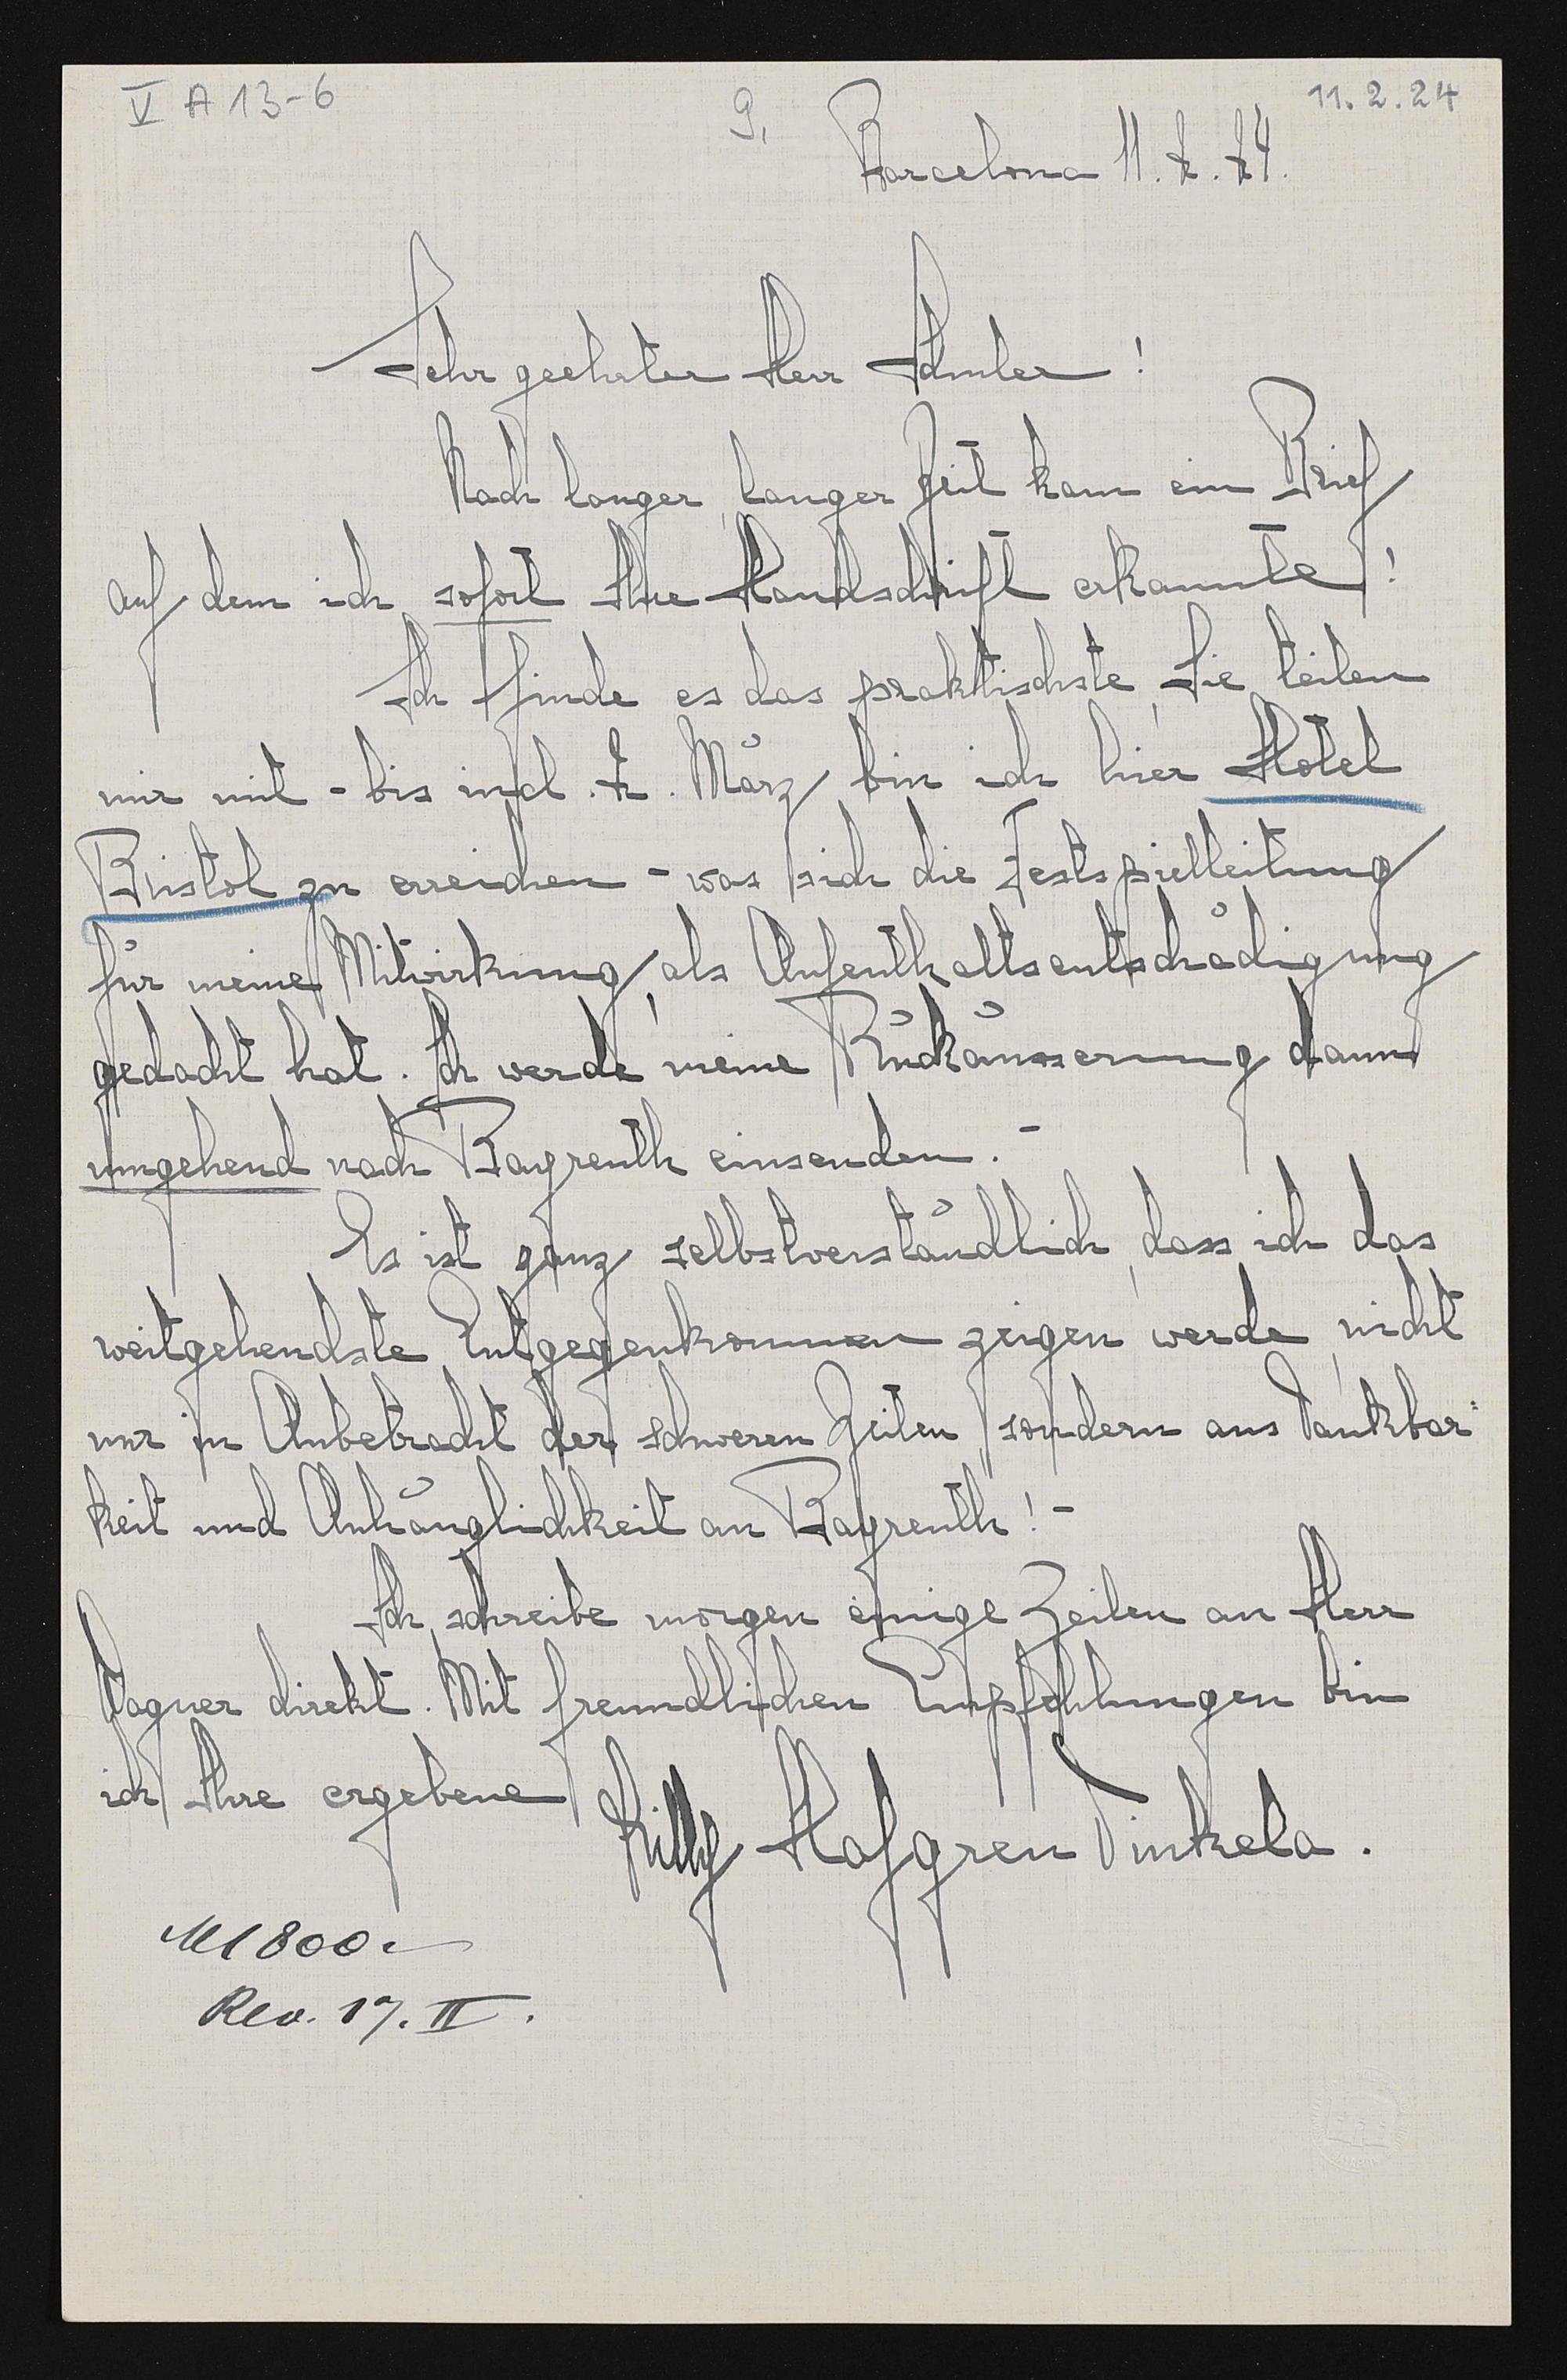 V A 13-6
9,
11.2.24
Barcelona 11. 2. 24.
Sehr geehrter Herr Schuler!
Nach langer, langer Zeit kam ein Brief
auf dem ich sofort Ihre Handschrift erkannte!
Ich finde es das praktischste, Sie teilen
mir mit - bis incl. 2. März bin ich hier Hotel
Bristol zu erreichen - was sich die Festspielleitung
für meine Mitwirkung, als Aufenthaltsentschädigung
gedacht hat. Ich werde meine Rückäusserung dann
umgehend nach Bayreuth einsenden. -
Es ist ganz selbstverständlich, dass ich das
weitgehendste Entgegenkommen zeigen werde, nicht
nur in Anbetracht der schweren Zeiten, sondern aus Dankbar-
keit und Anhänglichkeit an Bayreuth! -
Ich schreibe morgen einige Zeilen an Herr
Wagner direkt. Mit freundlichen Empfehlungen bin
ich Ihre ergebene Lilly Hafgren Dinkela.
M 1800.-
17. II.